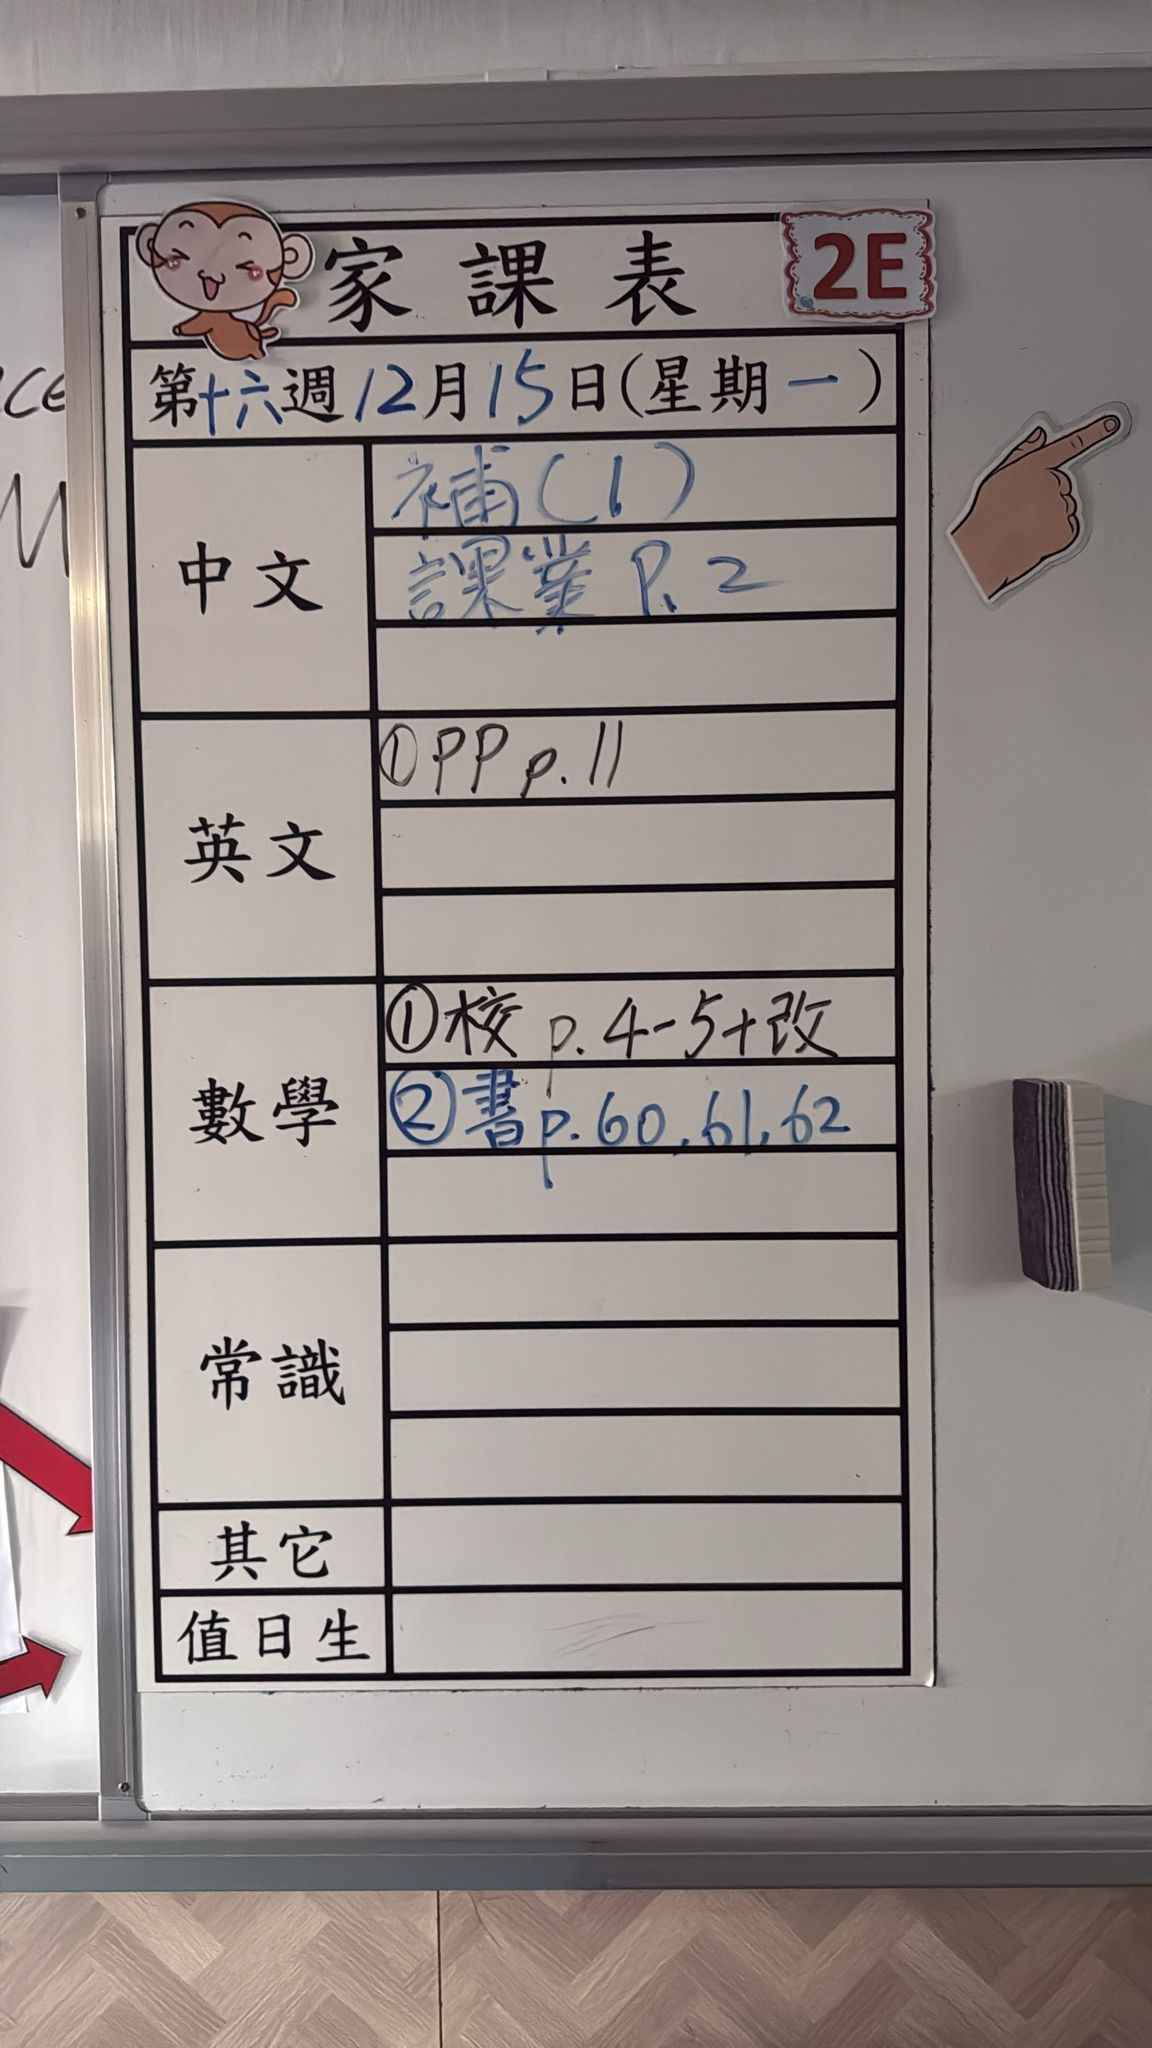 家課表
2E
第十六週12月15日(星期一)
中文
補(1)
課業 P. 2
英文
①PP p.11
數學
①校 p.4-5+改
②書p.60,61,62
常識
其它
值日生